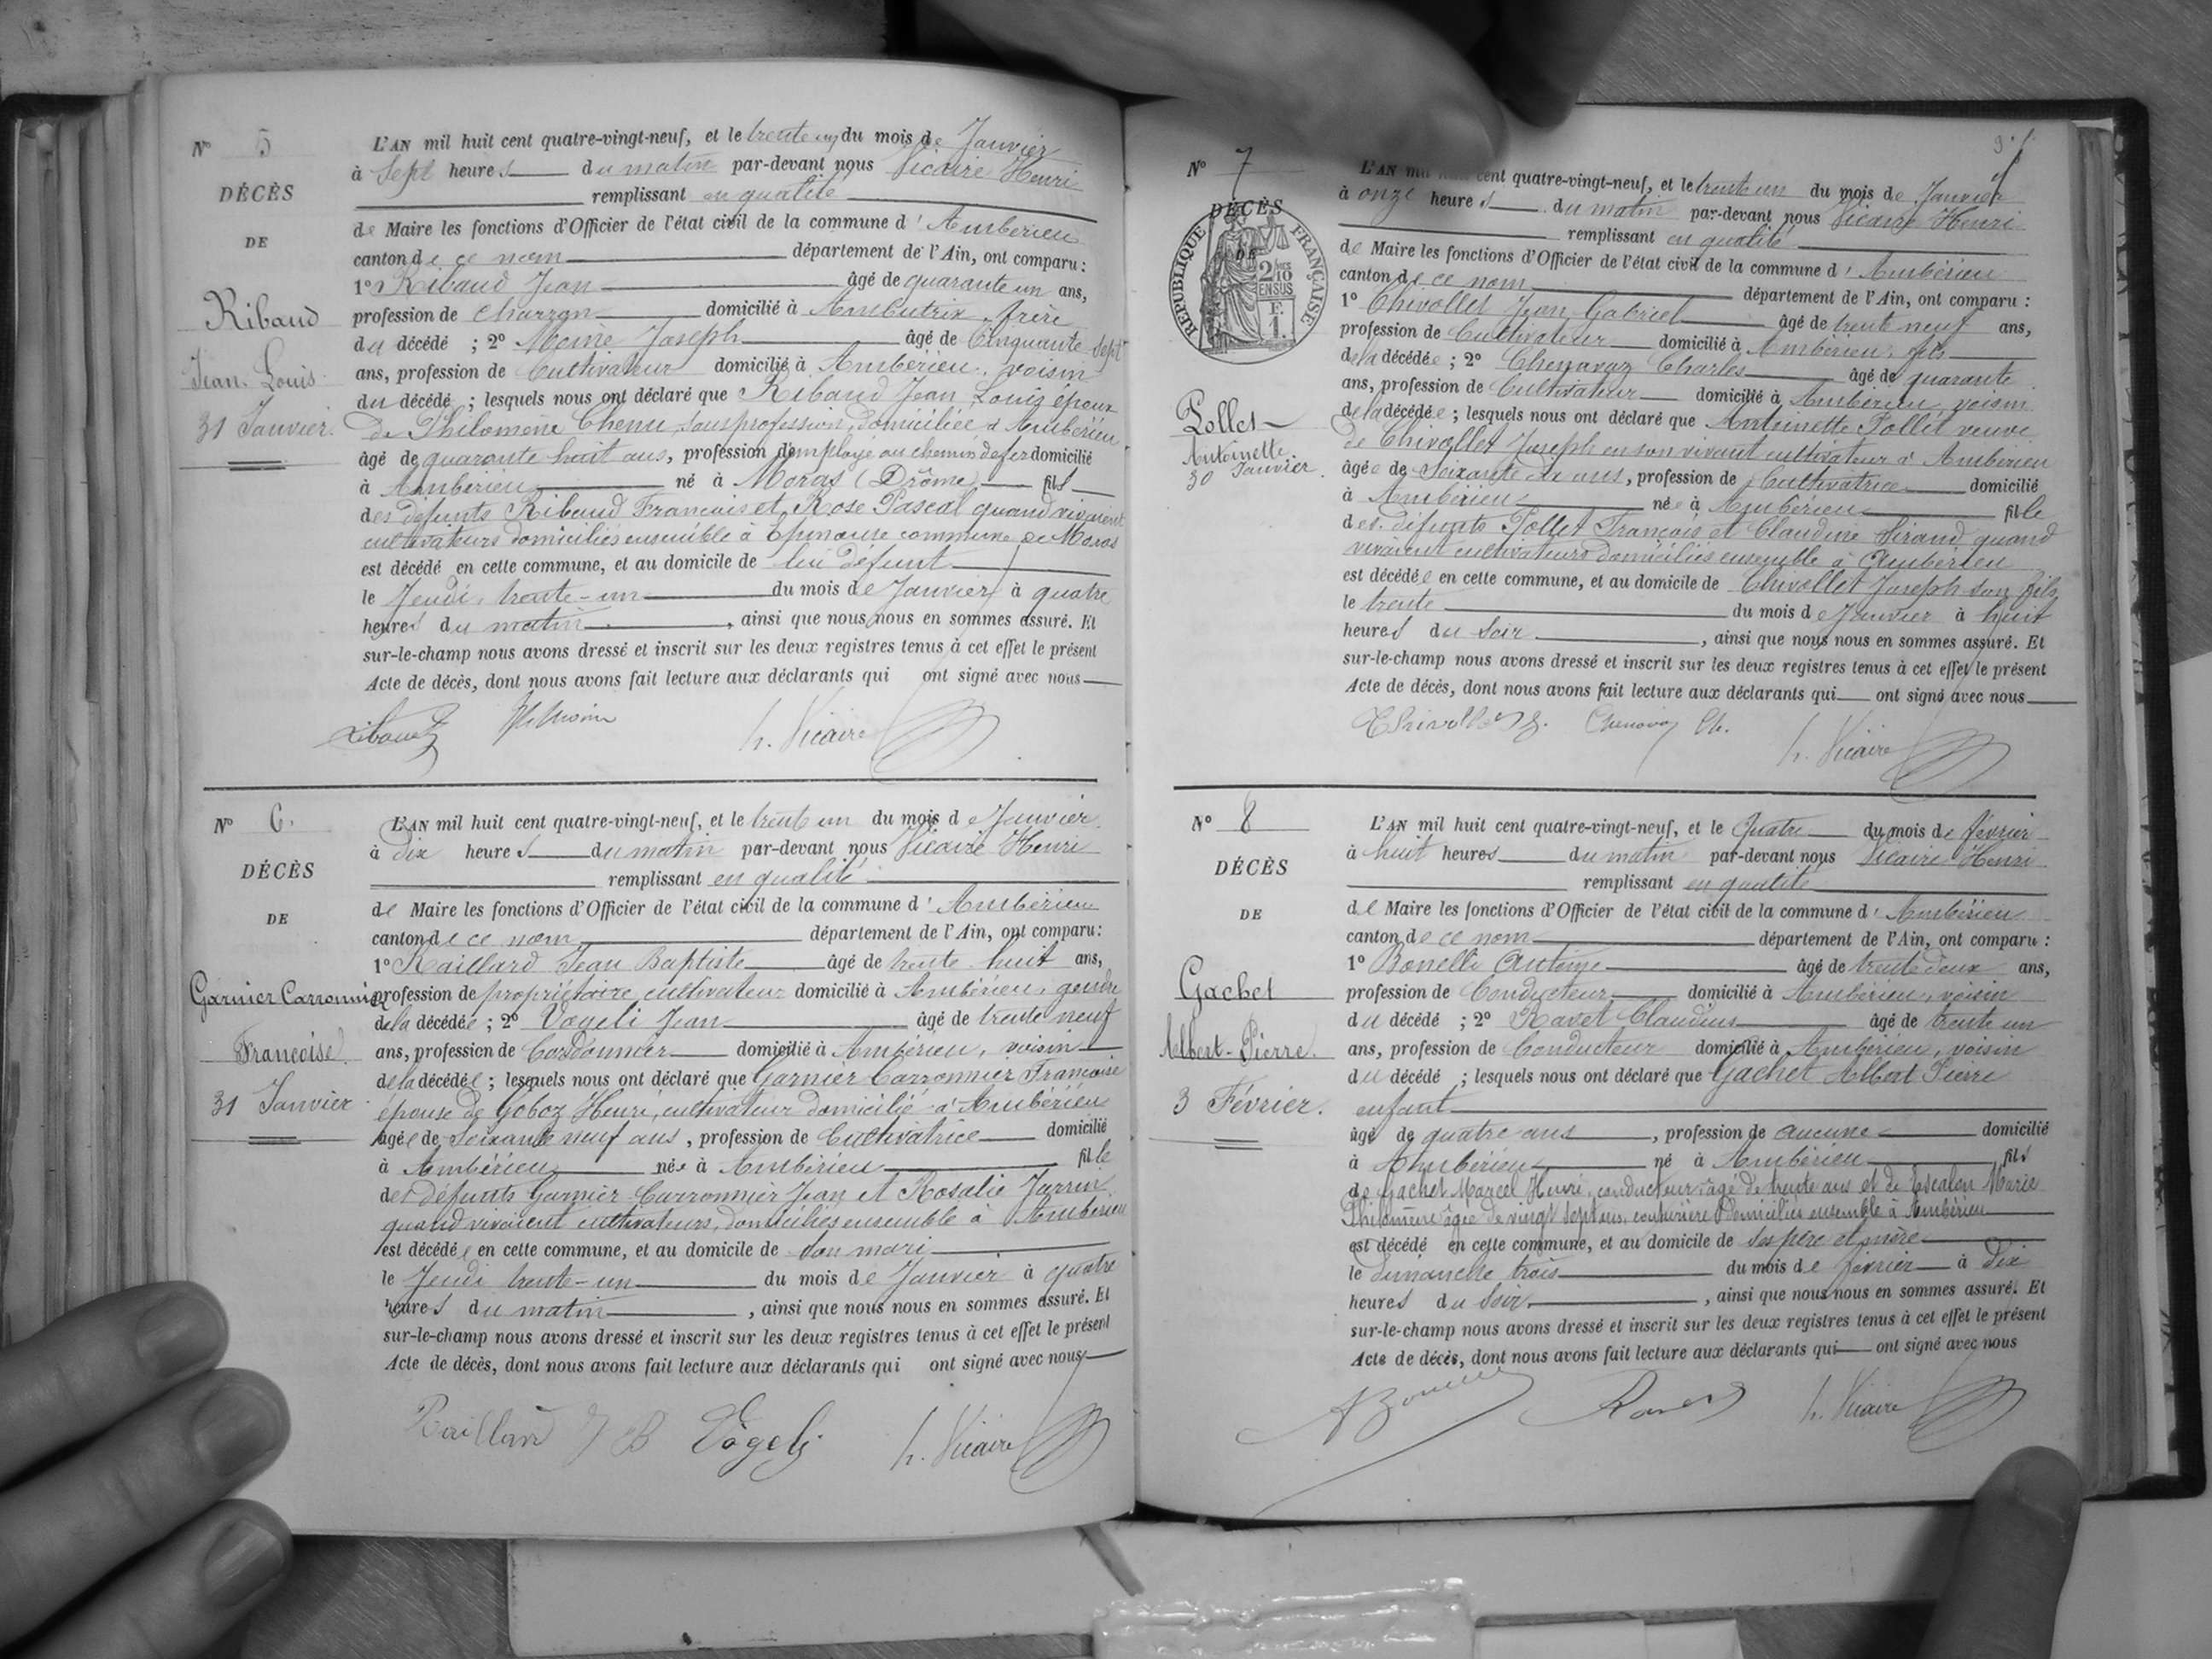 N° 5
DÉCÈS
DE
Ribaud
Jean Louis
31 Janvier.
L'AN mil huit cent quatre-vingt-neuf, et le trente un du mois de Janvier
à sept heures du matin par-devant nous Vicaire Henri
remplissant en qualité
de Maire les fonctions d'Officier de l'état civil de la commune d'Ambérieu
canton de ce nom département de l'Ain, ont comparu :
1° Ribaud Jean âgé de quarante un ans,
profession de charron domicilié à Ambutrix, frère
du décédé ; 2° Moine Joseph âgé de Cinquante sept
ans, profession de Cultivateur domicilié à Ambérieu, voisin
du décédé ; lesquels nous ont déclaré que Ribaud Jean Louis époux
de Philomène Chenu, sans profession, domiciliée à Ambérieu
âgé de quarante huit ans, profession d'employé au chemin de fer domicilié
à Ambérieu né à Moras (Drôme) fils
des défunts Ribaud Francois et Rose Pascal quand vivaient
cultivateurs domiciliés ensemble à commune de Moras
est décédé en cette commune, et au domicile de lui défunt
le Jeudi trente-un du mois de Janvier à quatre
heures du matin, ainsi que nous nous en sommes assuré. Et
sur-le-champ nous avons dressé et inscrit sur les deux registres tenus à cet effet le présent
Acte de décès, dont nous avons fait lecture aux déclarants qui ont signé avec nous
Ribaud h. Vicaire
N° 6.
DÉCÈS
DE
Garnier Carronnier
Françoise
31 Janvier
L'AN mil huit cent quatre-vingt-neuf, et le trente un du mois de Janvier
à Dix heures du matin par-devant nous Vicaire Henri
remplissant en qualité
de Maire les fonctions d'Officier de l'état civil de la commune d'Ambérieu
canton de ce nom département de l'Ain, ont comparu :
1° Raillard Jean Baptiste âgé de trente huit ans,
profession de propriétaire cultivateur domicilié à Ambérieu, gendre
de la décédée ; 2° Vogeli Jean âgé de trente neuf
ans, profession de Cordonnier domicilié à Ambérieu, voisin
de la décédée ; lesquels nous ont déclaré que Garnier Carronnier Francoise
épouse de Goboz Henri, cultivateur domicilié à Ambérieu
âgée de Soixante neuf ans, profession de Cultivatrice domicilié
à Ambérieu née à Ambérieu fille
des défunts Garnier-Carronnier Jean et Rosalie Jarrin
quand vivaient cultivateurs, domiciliés ensemble à Ambérieu
est décédée en cette commune, et au domicile de son mari
le Jeudi trente-un du mois de Janvier à quatre
heures du matin, ainsi que nous nous en sommes assuré. Et
sur-le-champ nous avons dressé et inscrit sur les deux registres tenus à cet effet le présent
Acte de décès, dont nous avons fait lecture aux déclarants qui ont signé avec nous
Raillard J B Vögeli h. Vicaire
N° 7
DÉCÈS
DE
RÉPUBLIQUE FRANÇAISE
2/10 EN SUS
F. 1.
Pollet
Antoinette
30 Janvier.
L'AN mil cent quatre-vingt-neuf, et le trente un du mois de Janvier
à onze heures du matin par-devant nous Vicaire Henri
remplissant en qualité
de Maire les fonctions d'Officier de l'état civil de la commune d'Ambérieu
canton de ce nom département de l'Ain, ont comparu :
1° Chivollet Jean Gabriel âgé de trente neuf ans,
profession de Cultivateur domicilié à Ambérieu, fils
de la décédée ; 2° Chenavaz Charles âgé de quarante
ans, profession de Cultivateur domicilié à Ambérieu, voisin
de la décédée ; lesquels nous ont déclaré que Antoinette Pollet veuve
de Chivollet Joseph en son vivant cultivateur à Ambérieu
âgée de Soixante dix ans, profession de Cultivatrice domicilié
à Ambérieu née à Ambérieu fille
des défunts Pollet Francois et Claudine Sirand quand
vivaient cultivateurs domiciliés ensemble à Ambérieu
est décédée en cette commune, et au domicile de Chivollet Joseph son fils
le trente du mois de Janvier à huit
heures du soir, ainsi que nous nous en sommes assuré. Et
sur-le-champ nous avons dressé et inscrit sur les deux registres tenus à cet effet le présent
Acte de décès, dont nous avons fait lecture aux déclarants qui ont signé avec nous
Chenavaz Ch. h. Vicaire
N° 8
DÉCÈS
DE
Gachet
Albert-Pierre.
3 Février.
L'AN mil huit cent quatre-vingt-neuf, et le Quatre du mois de février
à huit heures du matin par-devant nous Vicaire Henri
remplissant en qualité
de Maire les fonctions d'Officier de l'état civil de la commune d'Ambérieu
canton de ce nom département de l'Ain, ont comparu :
1° Bonelli Antoine âgé de trente deux ans,
profession de Conducteur domicilié à Ambérieu, voisin
du décédé ; 2° Ravet Claudius âgé de trente un
ans, profession de Conducteur domicilié à Ambérieu, voisin
du décédé ; lesquels nous ont déclaré que Gachet Albert Pierre
enfant
âgé de quatre ans, profession de aucune domicilié
à Ambérieu né à Ambérieu fils
de Gachet Marcel Henri, conducteur âgé de trente ans et de Escalon Marie
Philomène âgée de vingt sept ans, couturière domiciliés ensemble à Ambérieu
est décédé en cette commune, et au domicile de ses père et mère
le dimanche trois du mois de février à dix
heures du soir, ainsi que nous nous en sommes assuré. Et
sur-le-champ nous avons dressé et inscrit sur les deux registres tenus à cet effet le présent
Acte de décès, dont nous avons fait lecture aux déclarants qui ont signé avec nous
h. Vicaire